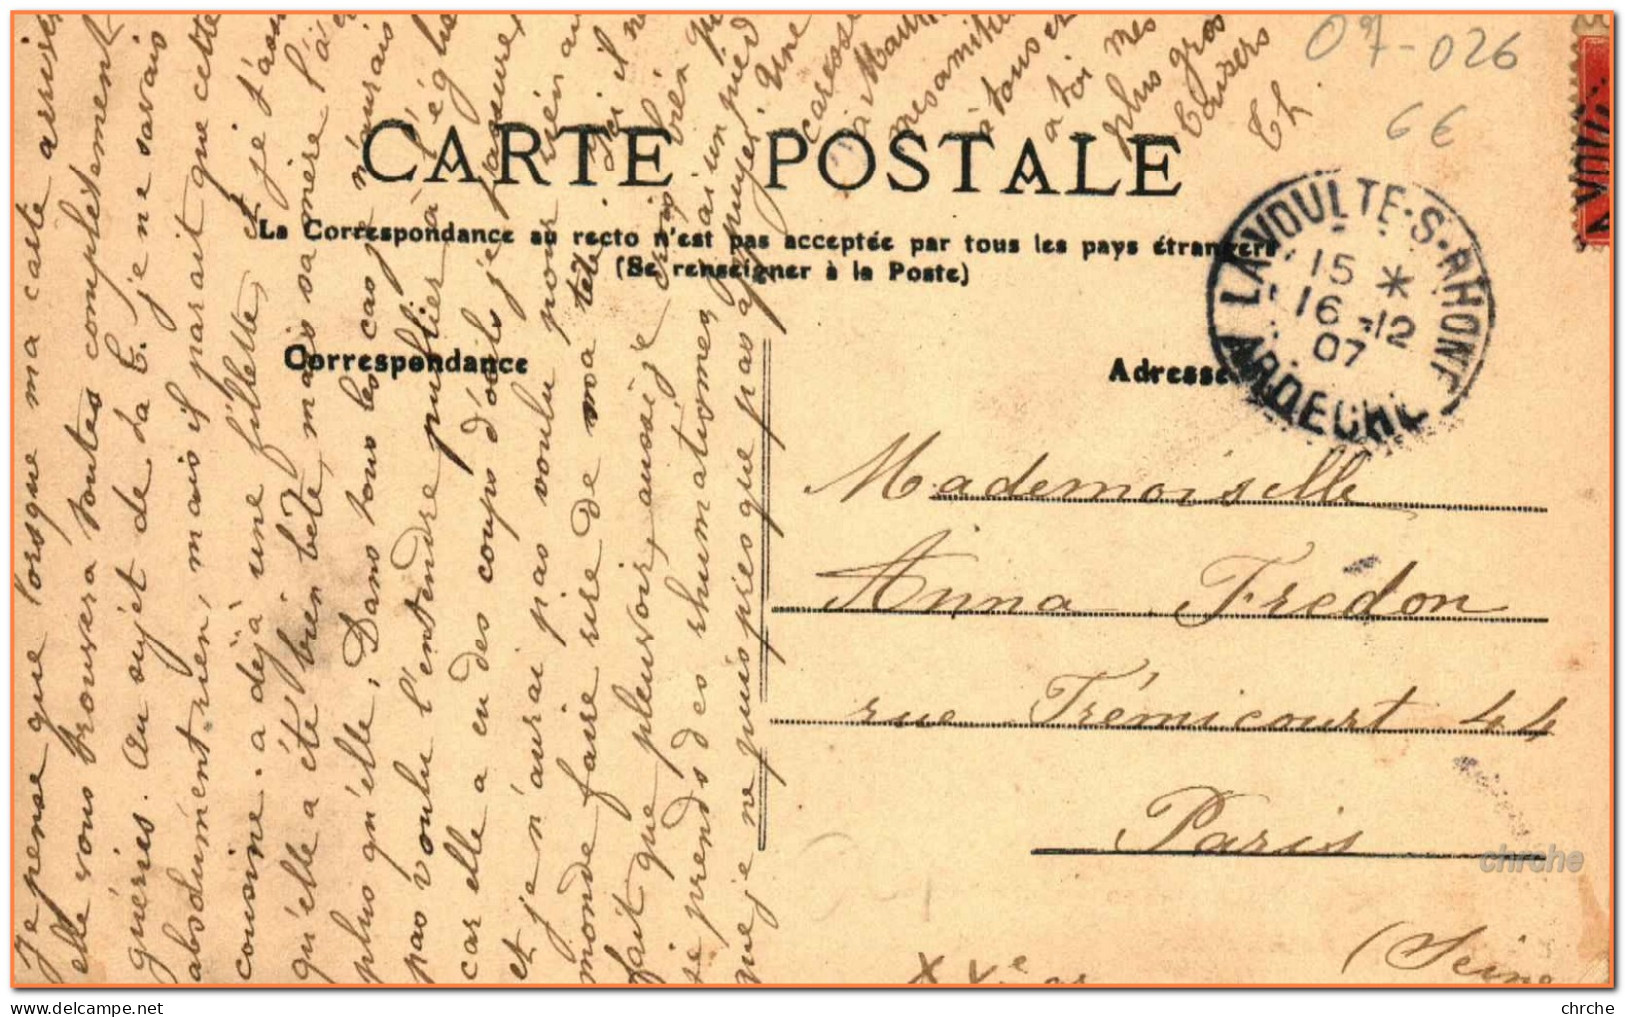 07-026
6 €
CARTE POSTALE
La Correspondance au recto n'est pas acceptée par tous les pays étrangers
(Se renseigner à la Poste)
Correspondance
Adresse
LAVOULTE-S-RHONE
15 *
16-12
07
ARDECHE
Mademoiselle
Anna Frédon
rue Trémicourt 44
Paris
(Seine
XVe ar
Je pense que lorsque ma carte arrive
elle vous trouvera toutes complètement
guéries. Au sujet de la C. je ne savais
absolument rien, mais il parait que cette
cousine a déjà une fillette, et je
qu'elle a été bien bête, mais sa mère l'a
plus qu'elle, Dans tous les cas je n'aurais
pas voulu l'entendre publier à l'ég
car elle a eu des coups d'oeils, je
et je n'aurai pas voulu pour bien au
monde faire rire de ma tête. Ici il n
fait que pleuvoir, aussi je crois bien
je prends des rhumatismes, ai un pied
que je ne puis presque pas appuyer. Une
caresse
à
mes amitiés
à tous et
à toi mes
plus gros
baisers
Th.
chrche
delcampe.net
chrche